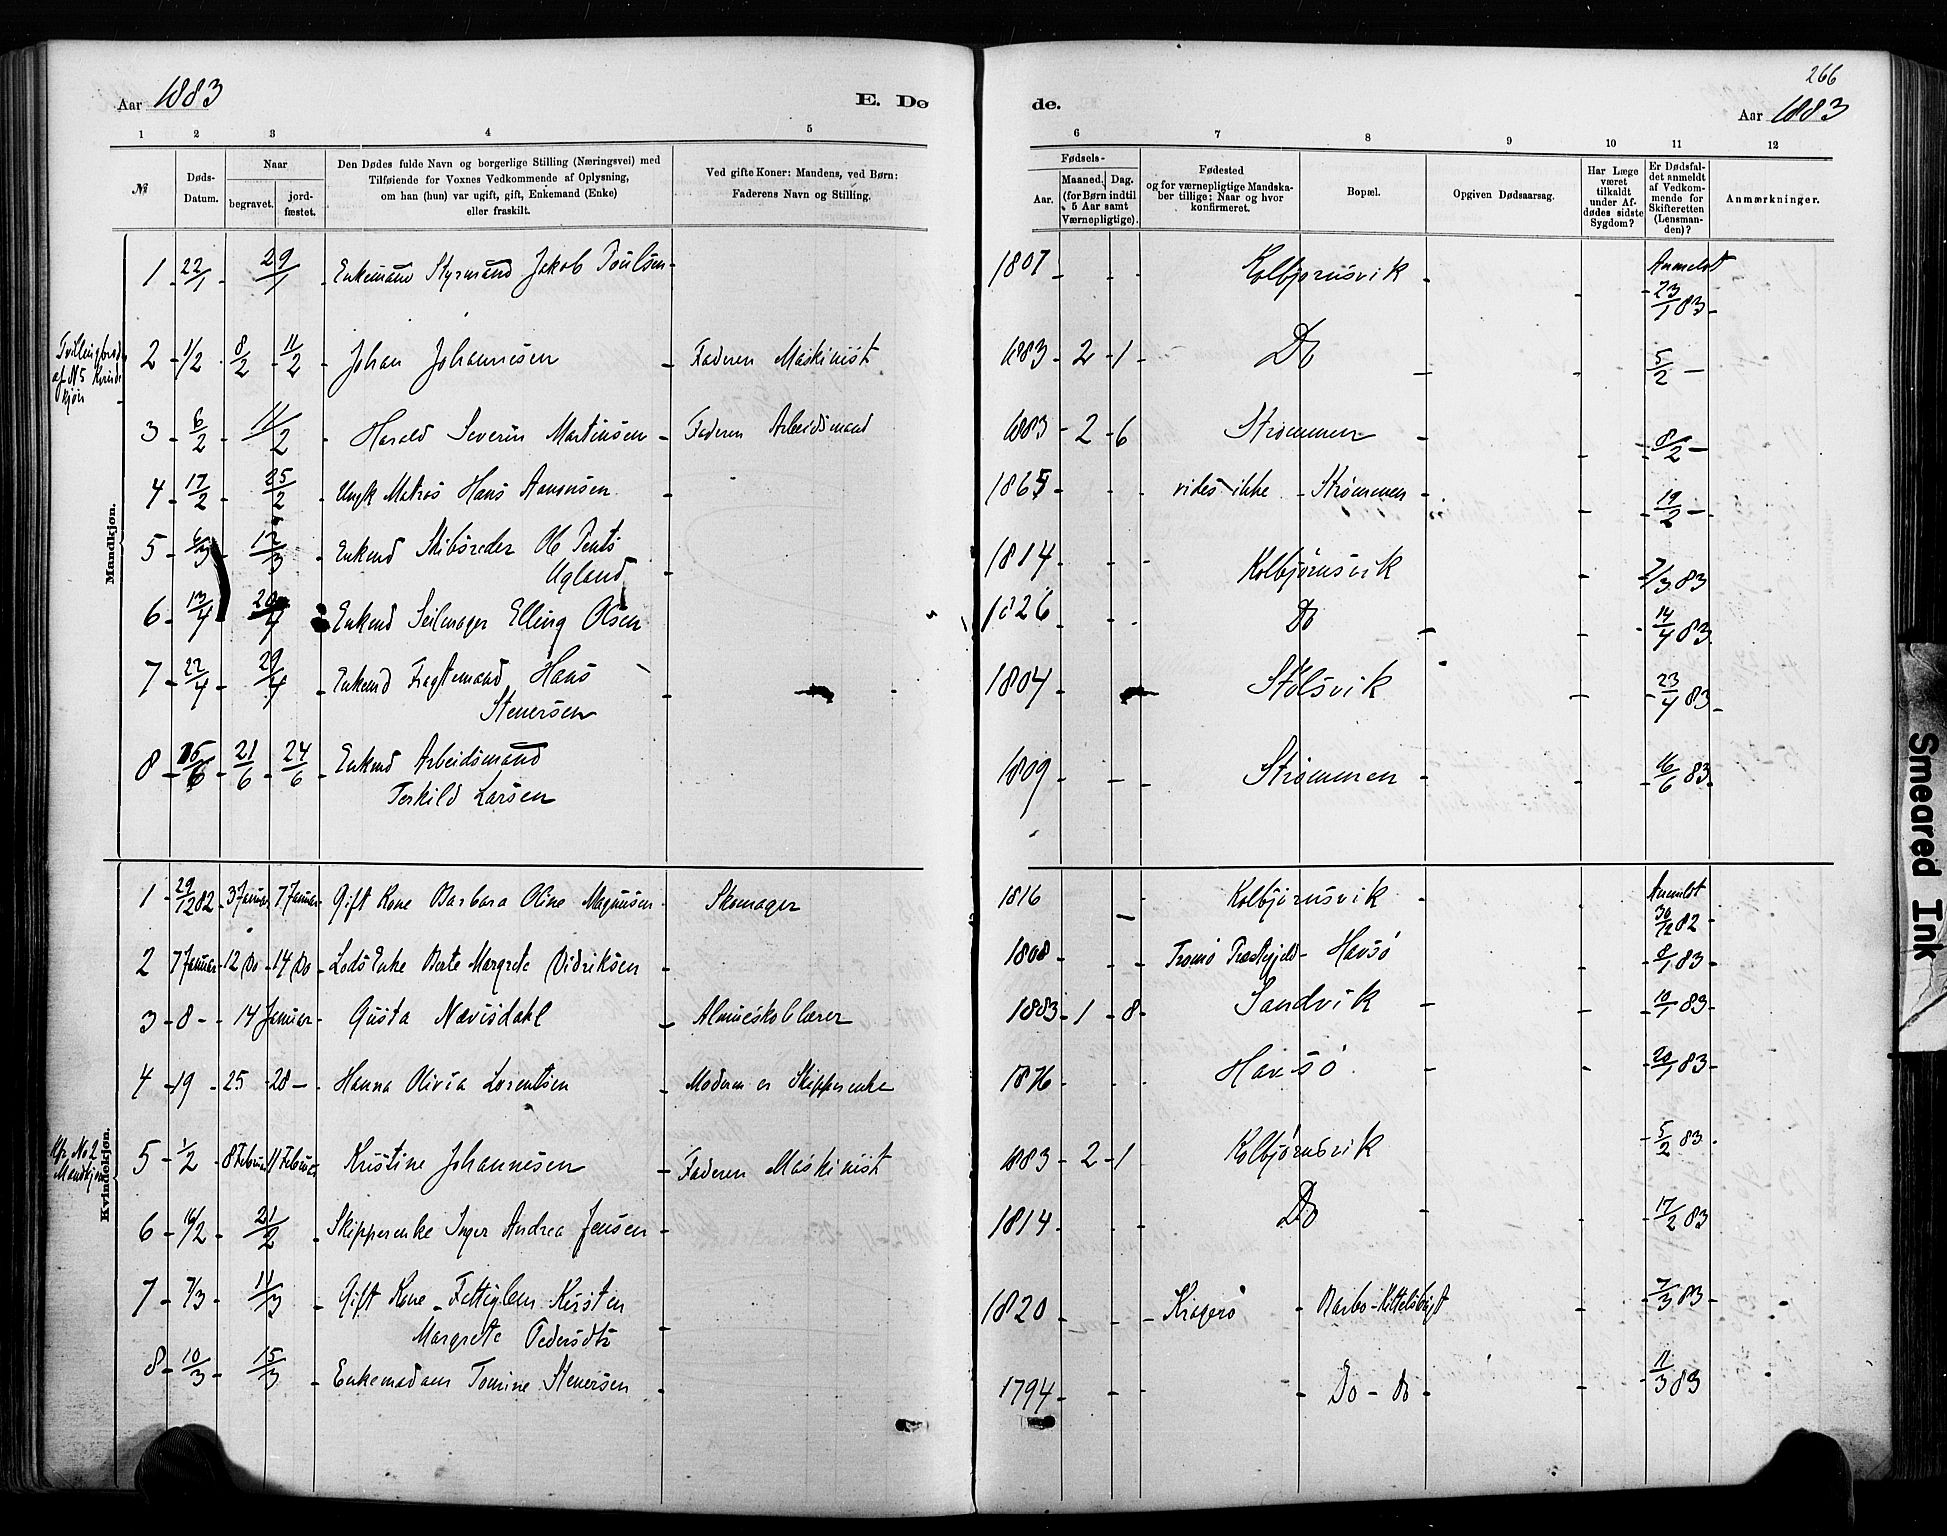 266
Aar 1883 E. Dø
de. Aar 1883
1 2 3 4 5 6 7 8 9 10 11 12
№
Døds-
Datum.
Naar
begravet.
jord-
fæstet.
Den Dødes fulde Navn og borgerlige Stilling (Næringsvei) med
Tilføiende for Voxnes Vedkommende af Oplysning,
om han (hun) var ugift, gift, Enkemand (Enke)
eller fraskilt.
Ved gifte Koner: Mandens, ved Børn:
Faderens Navn og Stilling.
Fødsels-
Aar.
Maaned. Dag.
(for Børn indtil
5 Aar samt
Værnepligtige).
Fødested
og for værnepligtige Mandska-
ber tillige: Naar og hvor
konfirmeret.
Bopæl.
Opgiven Dødsaarsag.
Har Læge
været
tilkaldt
under Af-
dødes sidste
Sygdom?
Er Dødsfal-
det anmeldt
af Vedkom-
mende for
Skifteretten
(Lensman-
den)?
Anmærkninger.
Mandkjøn.
1 22/1 29/1 Enkemand Styrmand Jakob Poulsen 1807 Kolbjørnsvik Anmeldt 23/1 83
af N 5 Kvinde
kjøn
2 1/2 8/2 11/2 Johan Johannesen Faderen Maskinist 1883 2 1 Do 5/2 —
3 6/2 11/2 Harald Severin Martinsen Faderen Arbeidsmand 1883 2 6 Strømmen 8/2 —
4 17/2 25/2 Ungk Matros Hans Aanonsen 1865 vides ikke Strømmen 19/2 —
5 6/3 12/3 Enkemd Skibsreder Ole Tents
Ugland 1814 Kolbjørnsvik 7/3 83
6 13/4 20/4 Enkemd Seilmager Elling Olsen 1826 Do 14/4 83
7 22/4 29/4 Enkemd Fragtemand Hans
Stenersen 1804 Stølsvik 23/4 83
8 15/6 21/6 24/6 Enkemd Arbeidsmand
Terkild Larsen 1809 Strømmen 16/6 83
Kvindekjøn.
1 29/12 82 3 Januar 7 Januar Gift Kone Barbara Oline Magnusen Skomager 1816 Kolbjørnsvik Anmeldt 30/12 82
2 7 Januar 12 Do 14 Do Lods Enke Berte Margrete Didriksen 1808 Tromø Præstegjeld Havsø 8/1 83
3 8 - 14 Januar Gusta Nævisdahl Almueskolelærer 1883 1 8 Sandvik 10/1 83
4 19 25 28 — Hanna Olivia Lorentsen Moderen er Skipperenke 1876 Havsø 20/1 83
Kfr. No 2
Mandkjøn
5 1/2 8 Februar 11 Februar Kristine Johannesen Faderen Maskinist 1883 2 1 Kolbjørnsvik 5/2 83
6 16/2 21/2 Skipperenke Inger Andrea Jensen 1814 Do 17/2 83
7 7/3 11/3 Gift Kone - Fattiglem Kirsten
Margrete Pedersdtr 1820 Kragerø Barbo - Kittelsbugt 7/3 83
8 10/3 15/3 Enkemadam Tomine Stenersen 1794 Do - Do 11/3 83
Smeared Ink